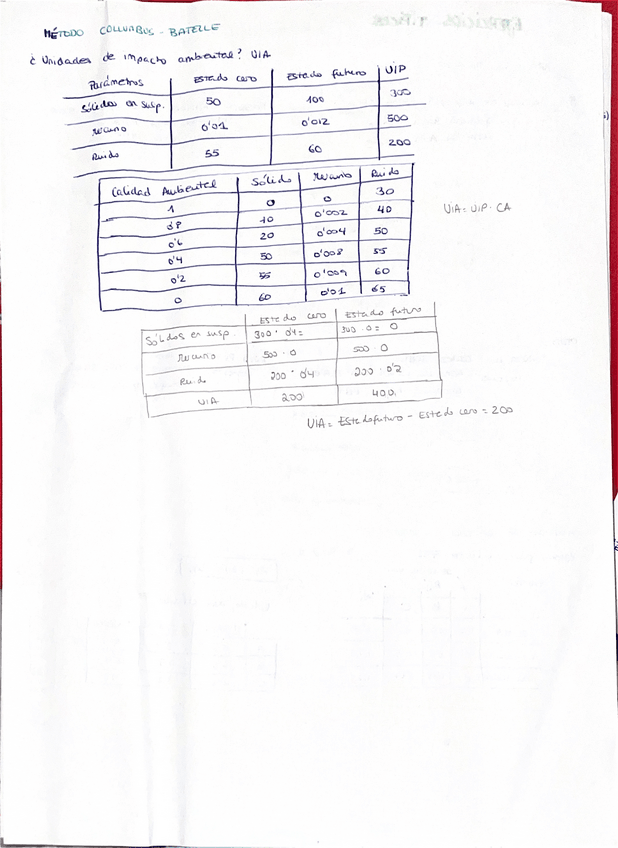 MÉTODO COLLUMBUS - BATELLE
¿ Unidades de impacto ambiental? UIA
Parámetros Estado cero Estado futuro UIP
Sólidos en susp. 50 100 300
Mercurio 0'01 0'012 500
Ruido 55 60 200
Calidad Ambiental Sólido Mercurio Ruido
1 0 0 30
0'8 10 0'002 40
0'6 20 0'004 50
0'4 50 0'008 55
0'2 55 0'009 60
0 60 0'01 65
UIA= UIP · CA
Estado cero Estado futuro
Sólidos en susp. 300 · 0'4= 300 · 0= 0
Mercurio 500 · 0 500 · 0
Ruido 200 · 0'4 200 · 0'2
UIA 200 400
UIA = Estado futuro - Estado cero = 200